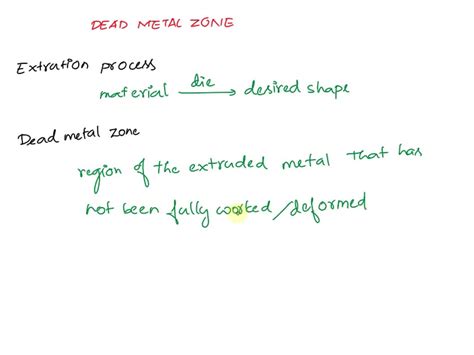 DEAD METAL ZONE
Extration process
material die → desired shape
Dead metal zone
region of the extruded metal that has
not been fully worked/deformed